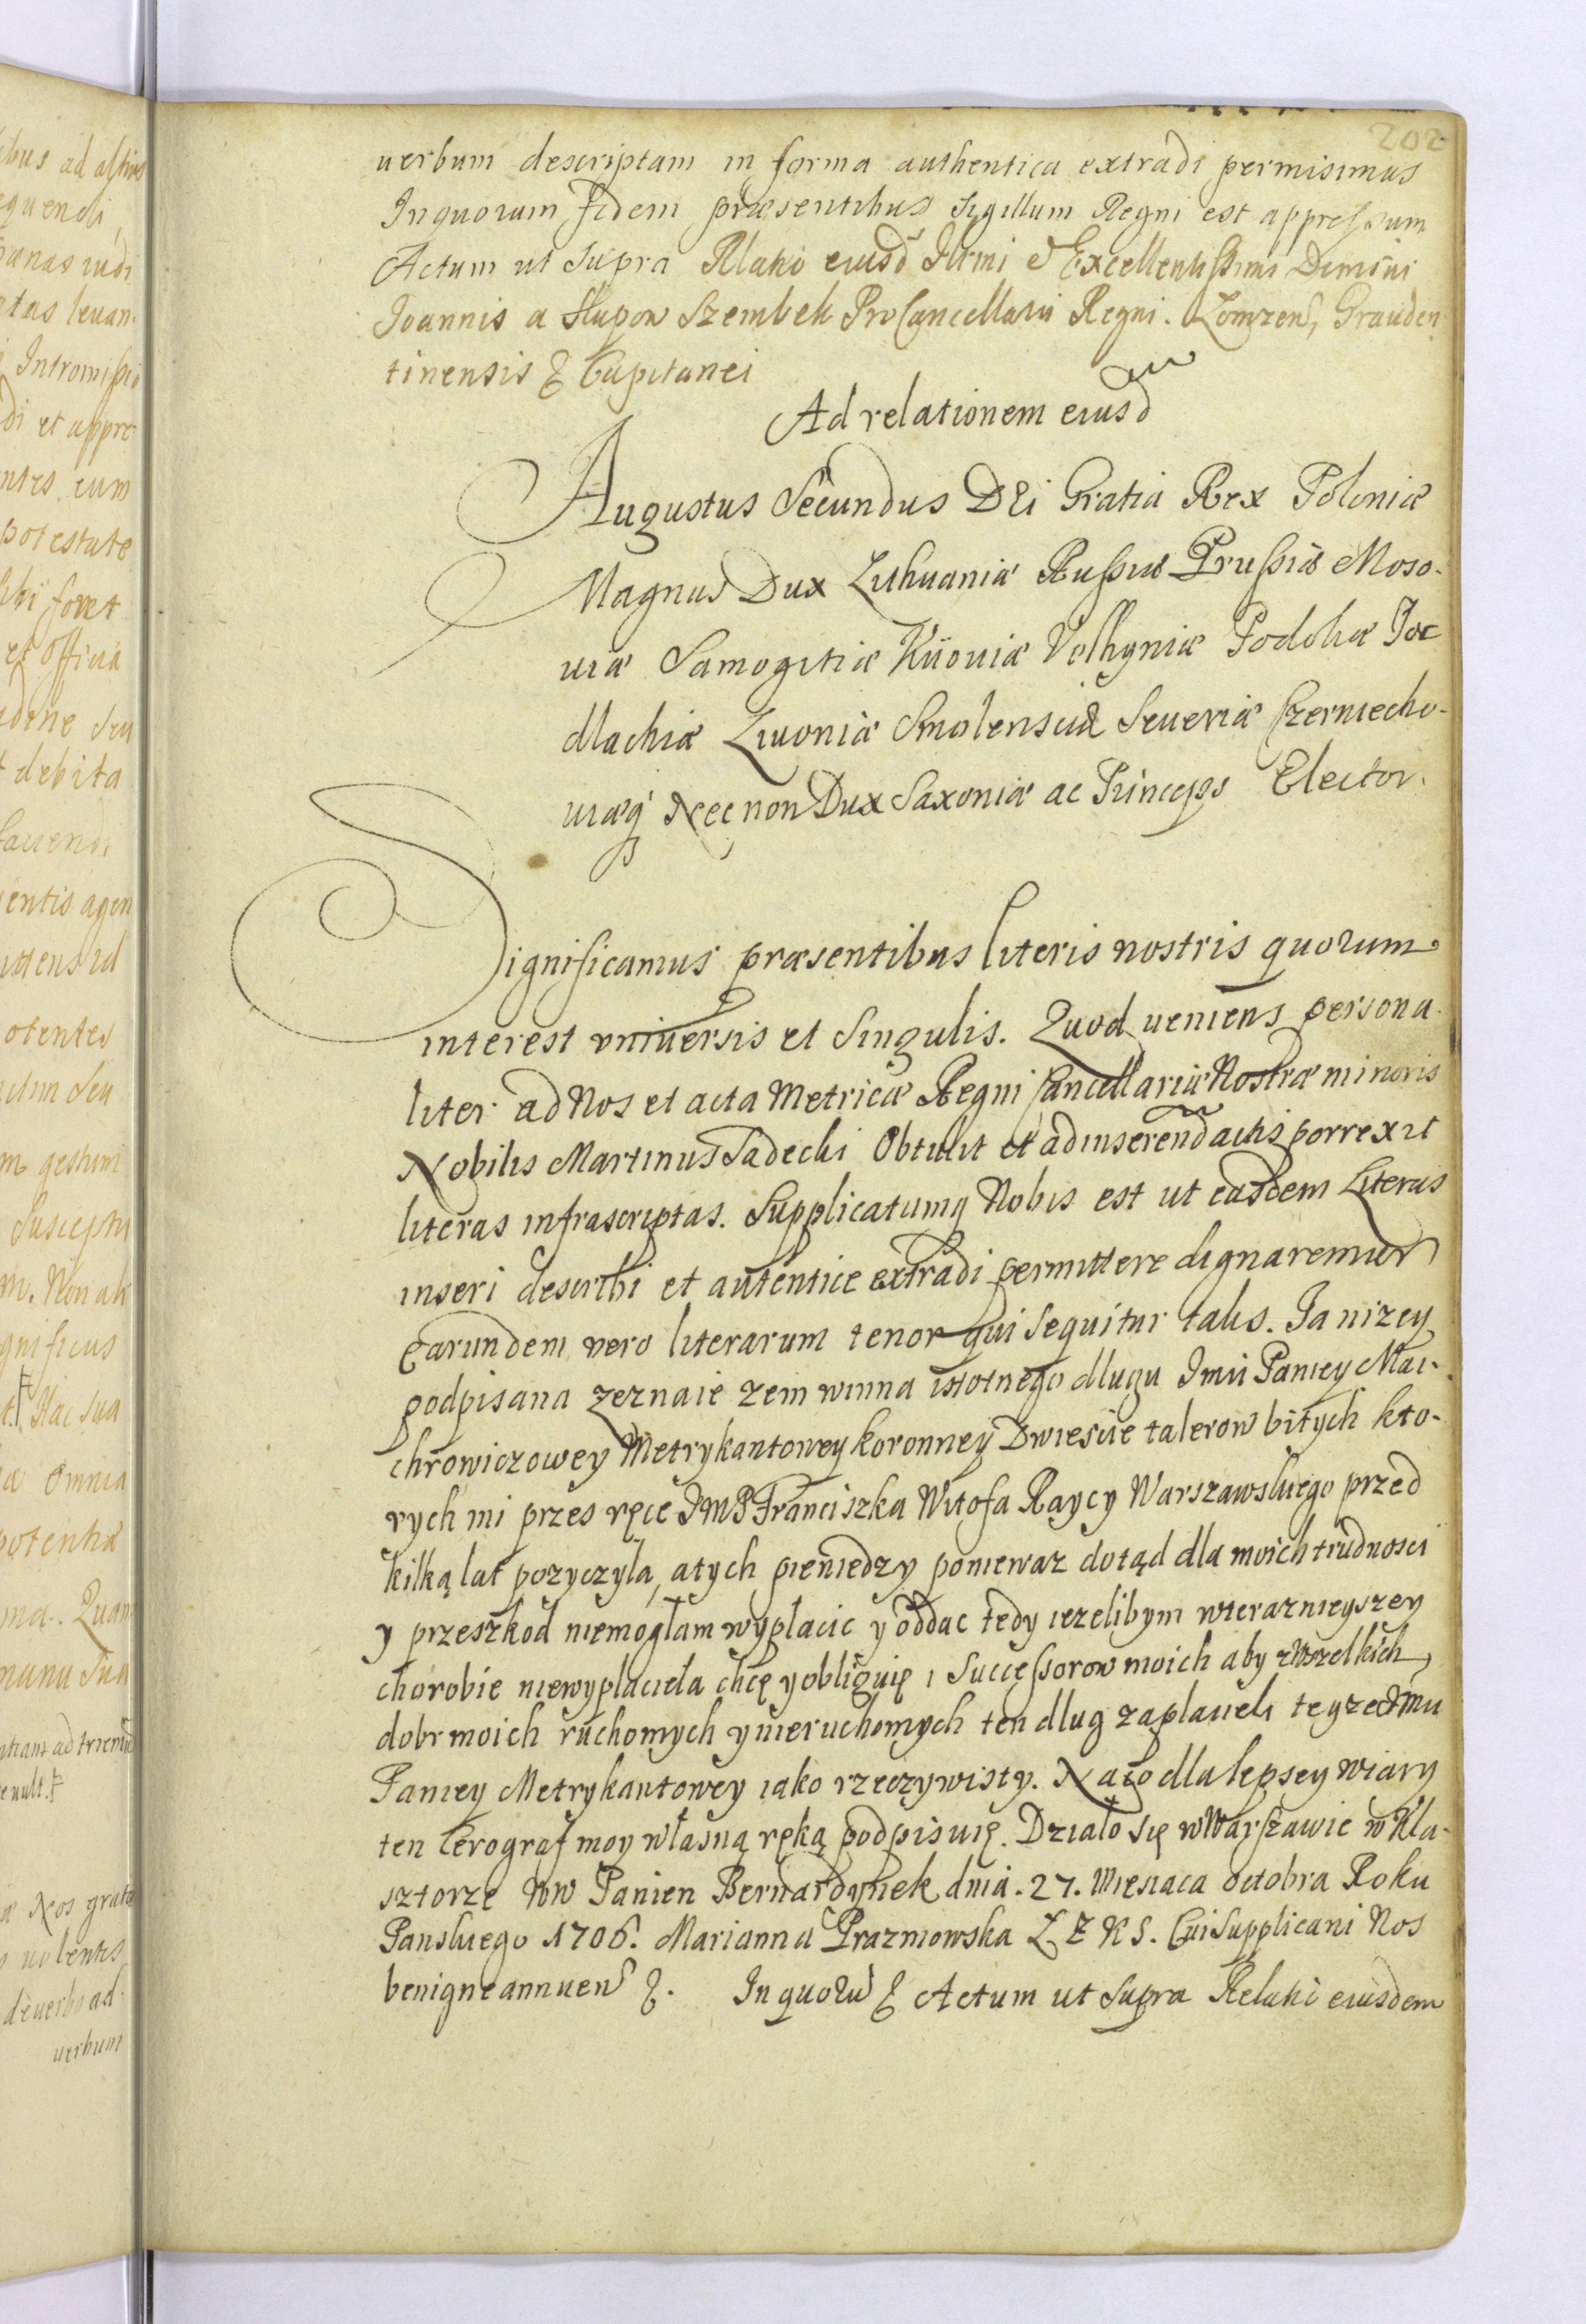 202
uerbum descriptam in forma authentica extradi permisimus
In quorum fidem præsentibus Sigillum Regni est appressum
Actum ut Supra Rlatio eiusd Illrmi & Excellentissimi Domini
Joannis a Słupow Szembek ProCancellarii Regni. Łomzens, Grauden
tinensis & Capitanei
Ad relationem eiusd
Augustus Secundus DEi Gratia Rex Poloniæ
Magnus Dux Lithuaniæ Russiæ Prussiæ Moso-
uiæ Samogitiæ Kiiouiæ Volhyniæ Podoliæ Poc
dlachiæ Liuoniæ Smolensciæ Seueriæ Czerniecho-
uiæq Nec non Dux Saxoniæ ac Princeps Elector.
Significamus præsentibus literis nostris quorum
interest vniversis et Singulis. Quod ueniens persona-
liter ad Nos et acta Metricæ Regni Cancellariæ Nostræ minoris
Nobilis Martinus Sadecki Obtulit et ad inserend actis porrexit
literas infrascriptas. Supplicatumq Nobis est ut easdem Literas
inseri describi et autentice extradi permittere dignaremur
Earundem vero literarum tenor qui sequitur talis. Ja nizey
podpisana zeznaie zem winna istotnego dlugu Jmii Paniey Mai-
chrowiczowey Metrykantowey koronney Dwiescie talerow bitych kto-
rych mi przes ręce JMP Franciszka Witofa Raycy Warszawskiego przed
kilką lat pozyczyla, a tych pieniedzy poniewaz dotąd dla moich trudnosci
y przeszkod niemogłam wyplacic y oddac tedy iezelibym wterazniejszey
chorobie niewyplaciela chcę y obliguię i Successorow moich aby zwszelkich
dobr moich ruchomych y nieruchomych ten dlug zaplacieli teyze Jmii
Paniey Metrykantowey iako rzeczywisty. Na to dla lepsey wiary
ten Cerograf moy własną ręką podpisuię. Działo się w Warszawie w Kla-
sztorze WW Panien Bernardynek dnia. 27. Miesiaca octobra Roku
Panskiego 1706. Marianna Prazmowska Z Z K S. Cui Supplicani Nos
benigne annuen &. In quoru & Actum ut Supra Relatio eiusdem